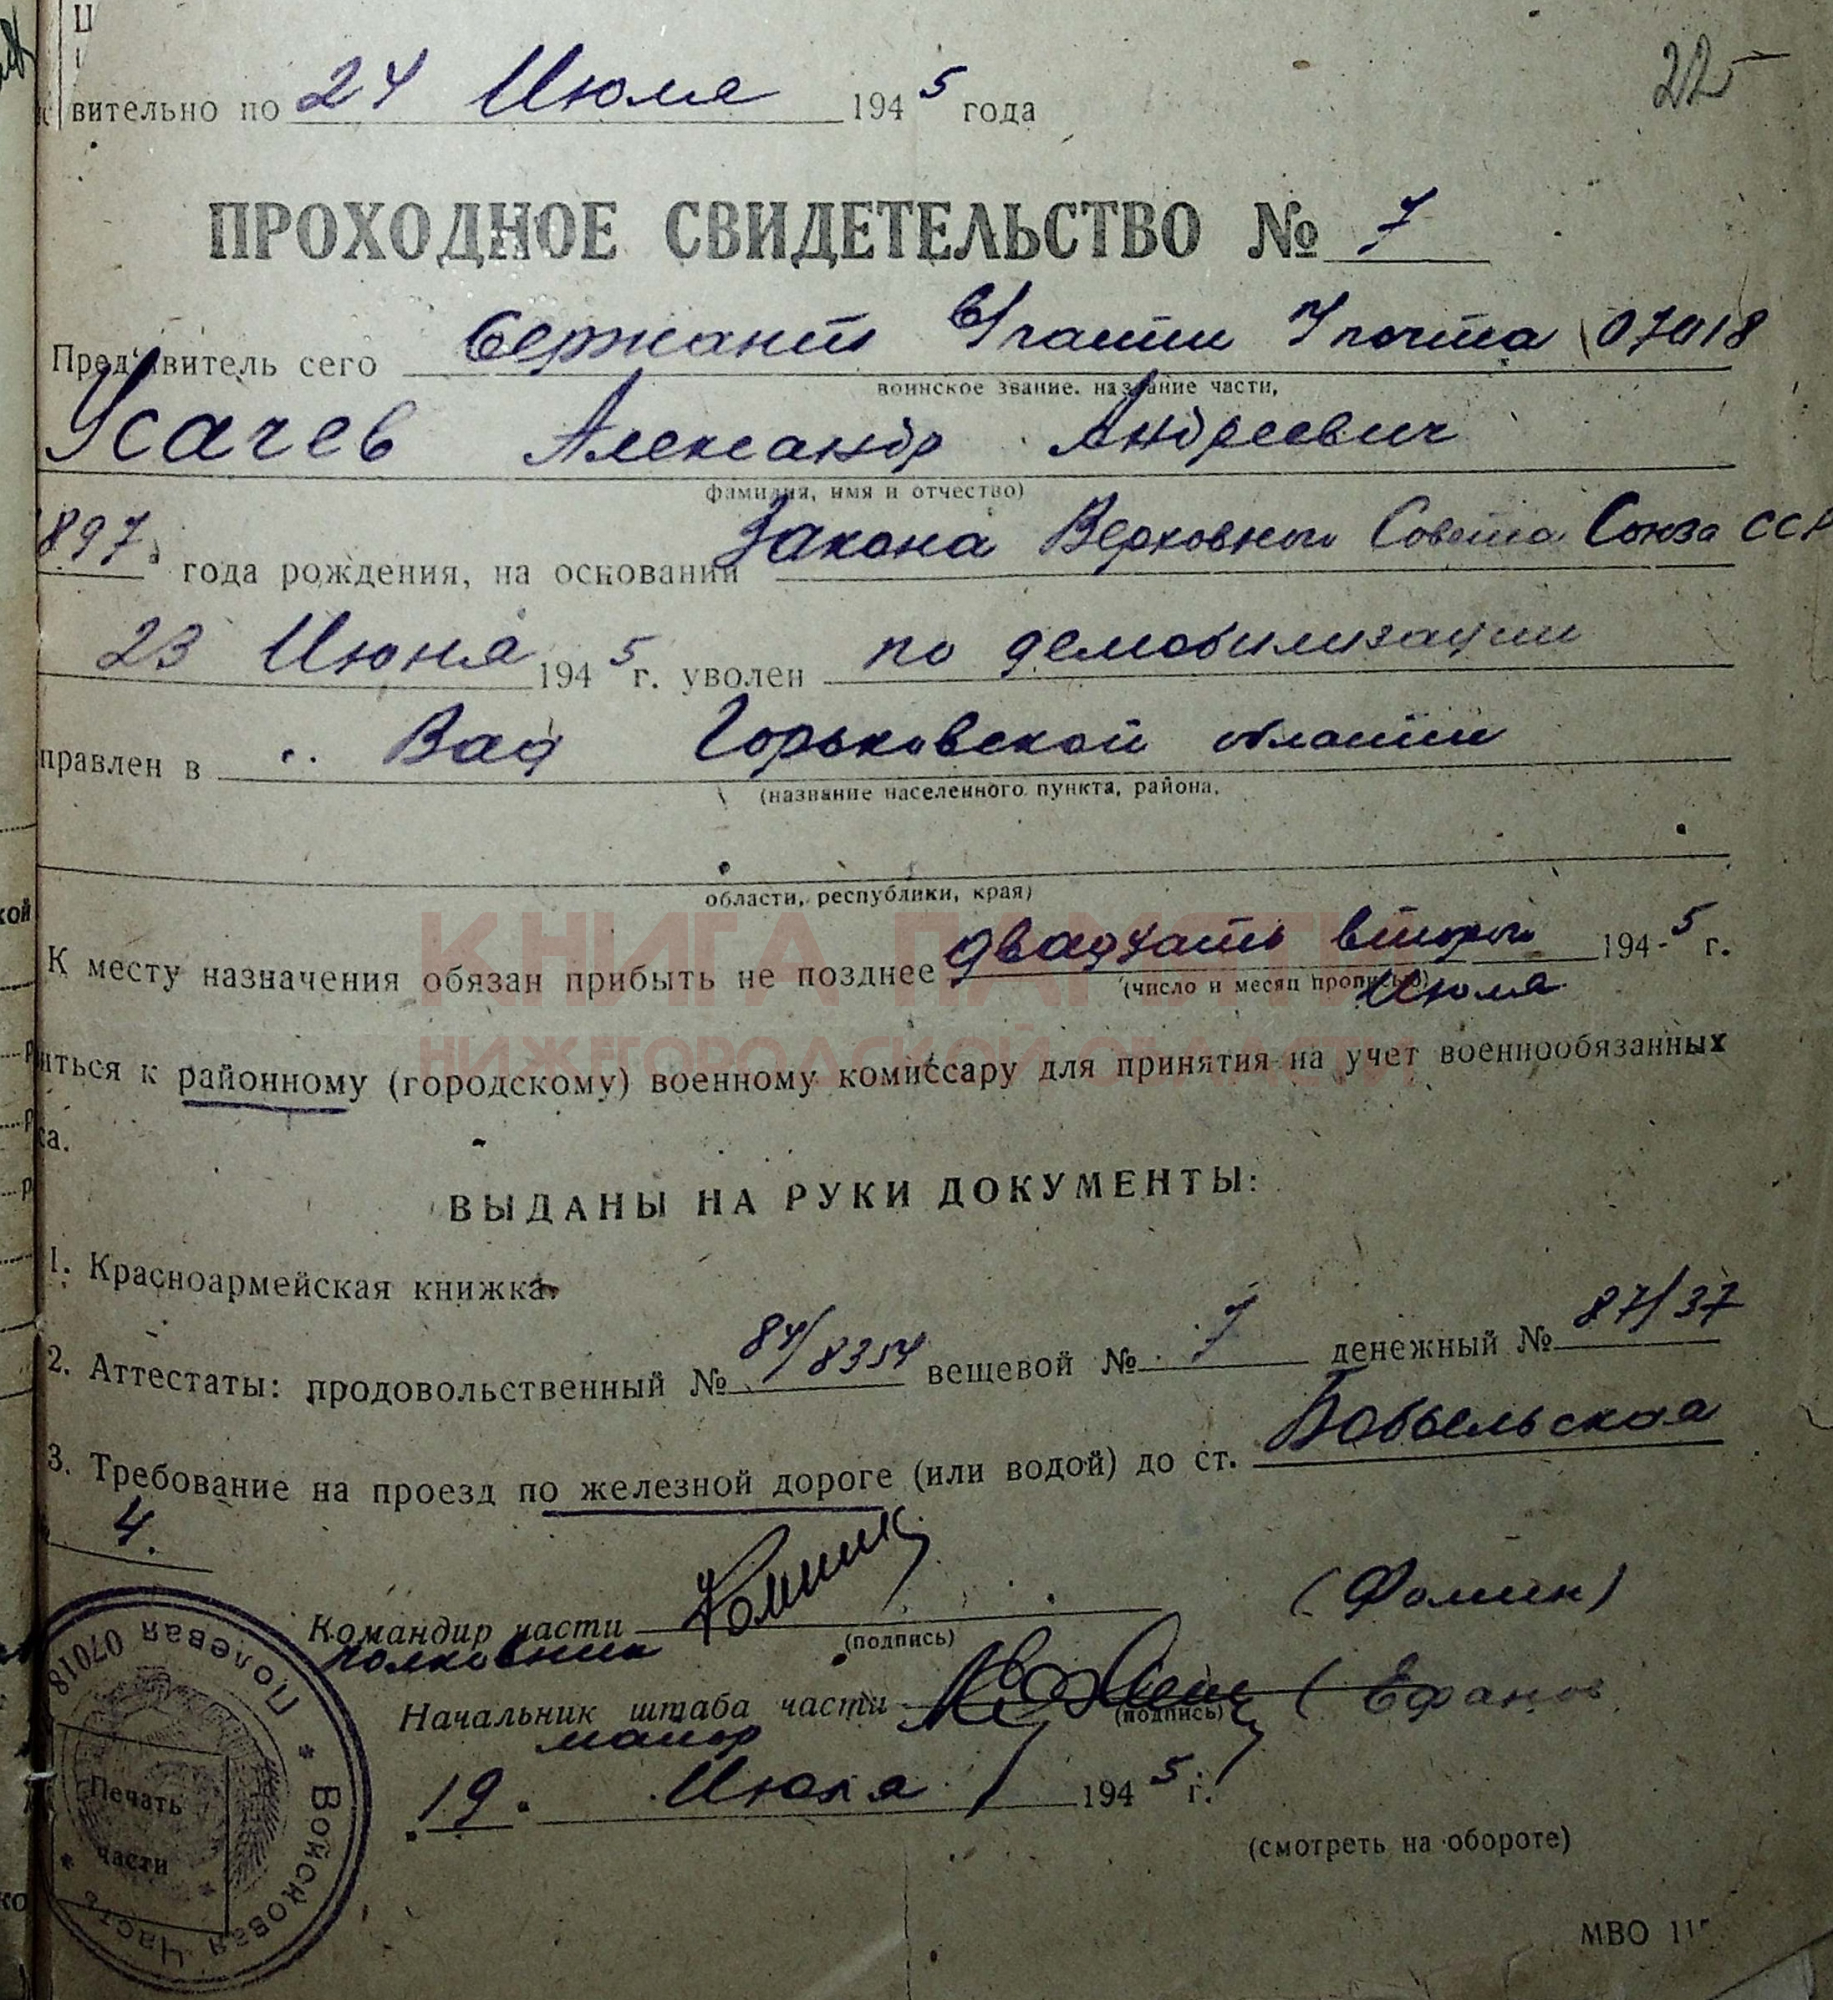 вительно по 24 Июля 1945 года
22
ПРОХОДНОЕ СВИДЕТЕЛЬСТВО № 7
Пред'явитель сего Сержант В/части П/почта 07018
воинское звание. название части,
Усачев Александр Андреевич
фамилия, имя и отчество)
1897. года рождения, на основании Закона Верховного Совета Союза ССР
23 Июня 1945 г. уволен по демобилизации
правлен в Вад Горьковской области
(название населенного пункта, района,
области, республики, края)
КНИГА ПАМЯТИ
К месту назначения обязан прибыть не позднее двадцать второго 1945 г.
(число и месяц прописью) Июля
НИЖЕГОРОДСКОЙ ОБЛАСТИ
иться к районному (городскому) военному комиссару для принятия на учет военнообязанных
са.
ВЫДАНЫ НА РУКИ ДОКУМЕНТЫ:
1. Красноармейская книжка.
2. Аттестаты: продовольственный № 84/8354 вещевой № 7 денежный № 87/37
3. Требование на проезд по железной дороге (или водой) до ст. Бобыльская
4.
Командир части (Фомин)
полковник (подпись)
Начальник штаба части (Ефанов
майор (подпись)
19. Июля 1945 г.
Войсковая Часть * Полевая 07018 *
Печать
части
(смотреть на обороте)
МВО 11